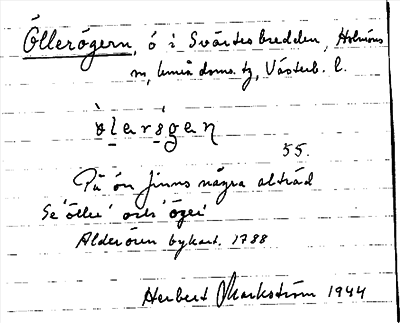 Öllerögern, ö i Svärtesbredden, Holmöns
sn, Umeå doms. tg, Västerb. l.
55.
På ön finns några alträd
Se 'öller' och 'öger'
Alderören bykart. 1788
Herbert Markström 1944